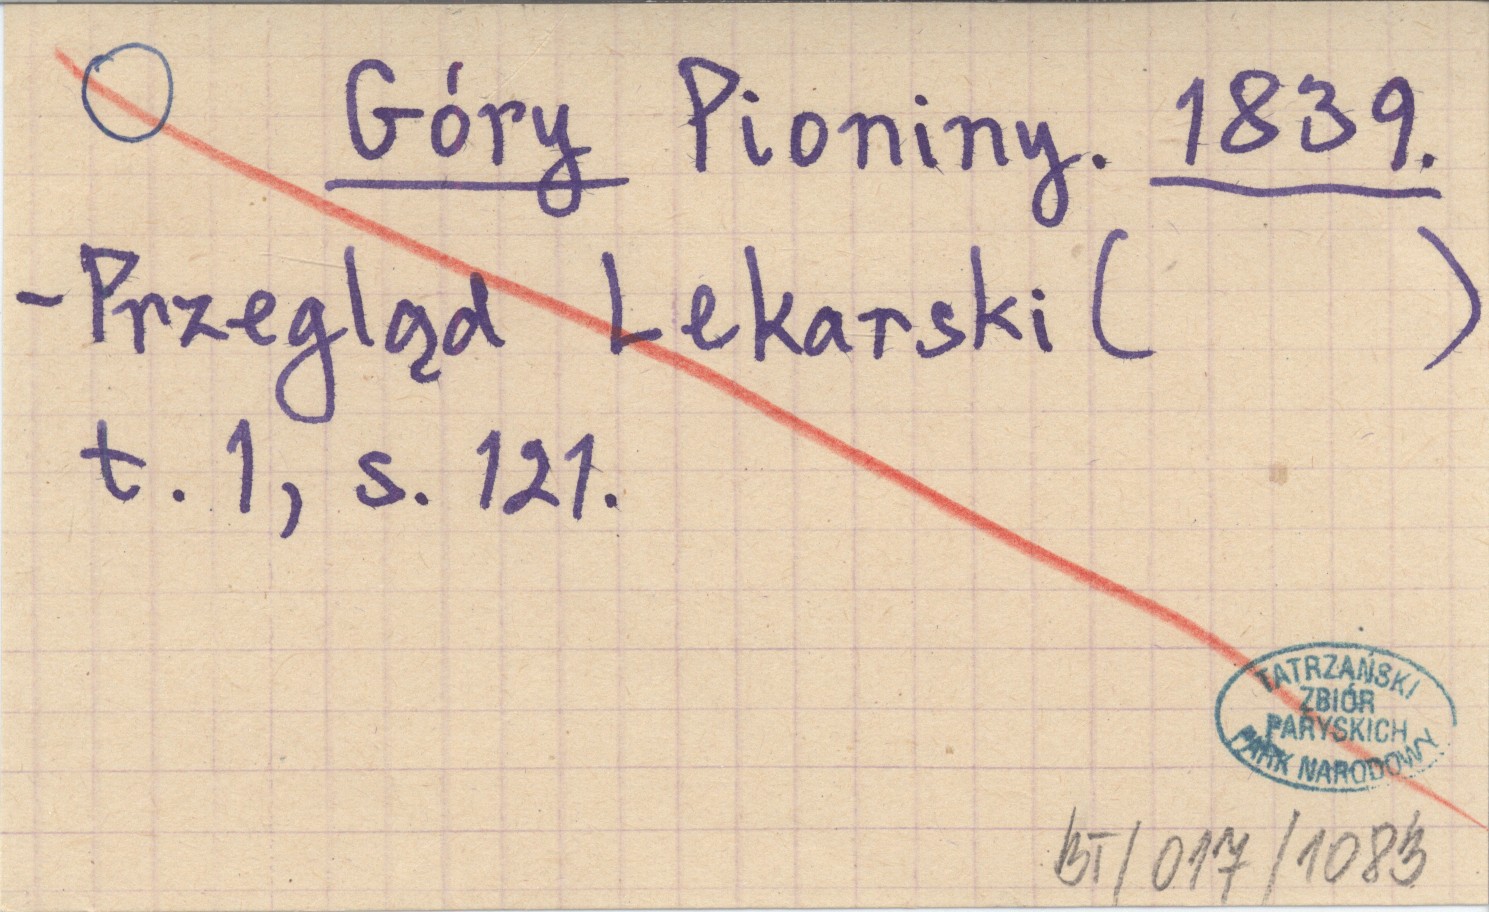 Góry Pioniny. 1839.
- Przegląd Lekarski (          )
t. 1, s. 121.
TATRZAŃSKI
ZBIÓR
PARYSKICH
PARK NARODOWY
BT/017/1083